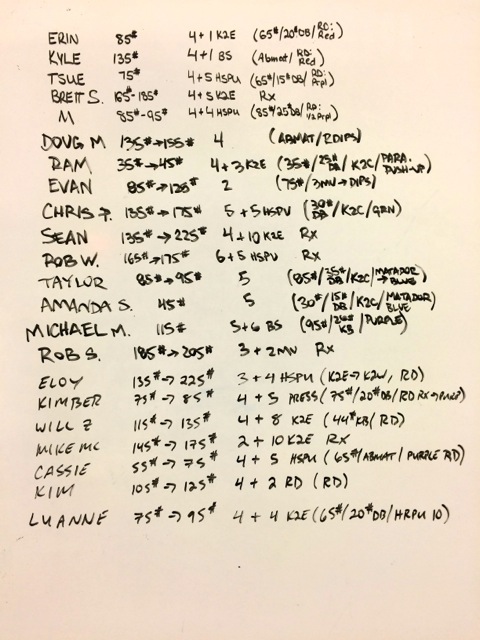 ERIN 85# 4+1 K2E (65#/20#DB/RD: Red)
KYLE 135# 4+1 BS (Abmat/RD: Red)
TSUE 75# 4+5 HSPU (65#/15#DB/RD: Prpl)
BRETT S. 165#-185# 4+5 K2E Rx
M 85#-95# 4+4 HSPU (85#/25#DB/RD: 1/2 Prpl)
DOUG M 135#→155# 4 (ABMAT/RDIPS)
RAM 35#→45# 4+3 K2E (35#/25# DB/K2C/PARA. PUSH-UP)
EVAN 85#→125# 2 (75#/3MU→DIPS)
CHRIS P. 135#→175# 5+5 HSPU (30# DB/K2C/GRN)
SEAN 135#→225# 4+10 K2E Rx
ROB W. 165#→175# 6+5 HSPU Rx
TAYLOR 85#→95# 5 (85#/35# DB/K2C/MATADOR→BLUE)
AMANDA S. 45# 5 (30#/15# DB/K2C/MATADOR BLUE)
MICHAEL M. 115# 5+6 BS (95#/26# KB/PURPLE)
ROB S. 185#→205# 3+2MU Rx
ELOY 135#→225# 3+4 HSPU (K2E→K2W, RD)
KIMBER 75#→85# 4+5 PRESS/75#/20#DB/RD RX→
WILL Z 115#→135# 4+8 K2E (44#KB/RD)
MIKE MC 145#→175# 2+10 K2E Rx
CASSIE 55#→75# 4+5 HSPU (65#/ABMAT/PURPLE RD)
KIM 105#→125# 4+2 RD (RD)
LUANNE 75#→95# 4+4 K2E (65#/20#DB/HRPU 10)